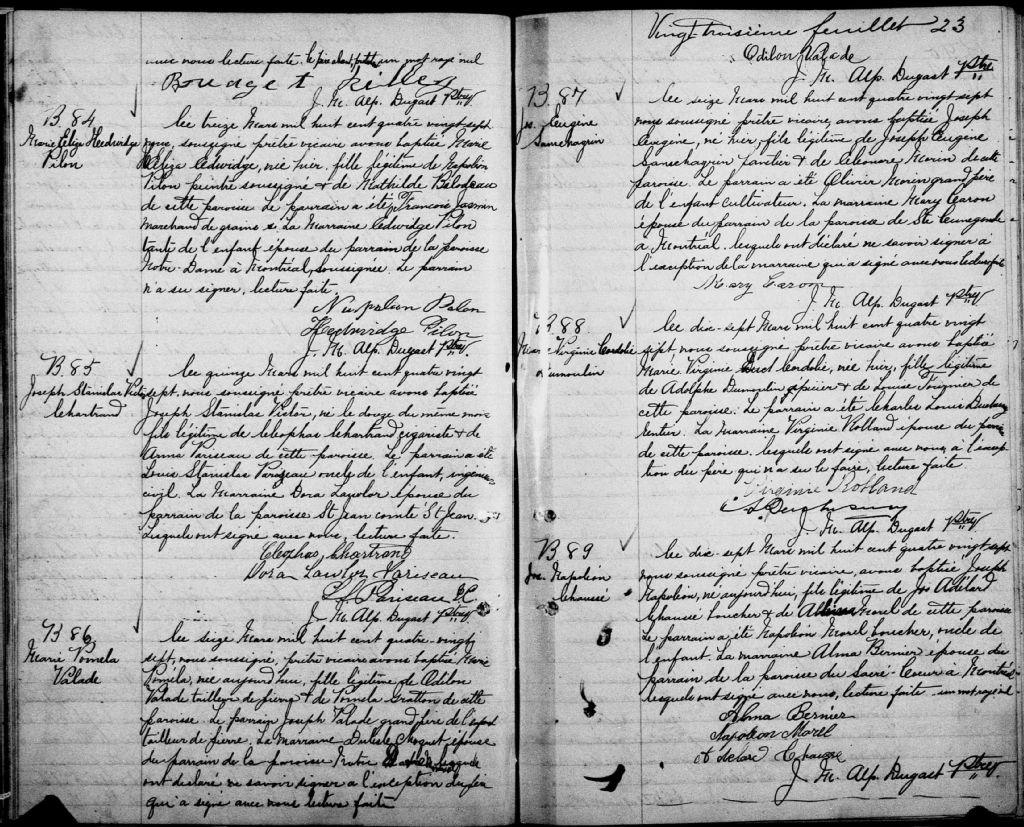 avec nous lecture faite. un mot rayé nul
J. M. Alp. Dugast Ptre
B 84
Marie Eliza Hedwidge
Pilon
Le treize Mars mil huit cent quatre vingt sept
nous, soussigné prêtre vicaire avons baptisé Marie
Eliza Edwidge, née hier, fille légitime de Napoléon
Pilon peintre soussigné & de Mathilde Bélodeau
de cette paroisse. Le parrain a été François Jasmin
marchand de grains & La Marraine Edwidge Pilon
tante de l'enfant épouse du parrain de la paroisse
Notre-Dame à Montréal, soussignée. Le parrain
n'a su signer, lecture faite.
Napoleon Pilon
Hedwidge Pilon
J. M. Alp. Dugast Ptre
B 85
Joseph Stanislas Victor
Chartrand
Le quinze Mars mil huit cent quatre vingt
sept, nous soussigné prêtre vicaire avons baptisé
Joseph Stanislas Victor, né le douze du même mois
fils légitime de Cléophas Chartrand cigariste & de
Anna Pariseau de cette paroisse. Le parrain a été
Louis Stanislas Pariseau oncle de l'enfant, ingénieur
civil. La Marraine Dora Lawlor épouse du
parrain de la paroisse St Jean comté St Jean.
Lesquels ont signé avec nous, lecture faite.
Cleophas Chartrand
Dora Lawlor Pariseau
Pariseau
J. M. Alp. Dugast Ptre
B 86
Marie Poméla
Valade
Le seize Mars mil huit cent quatre-vingt
sept, nous soussigné, prêtre vicaire avons baptisé Marie
Poméla, née aujourd'hui, fille légitime de Odilon
Valade tailleur de pierre & de Poméla Gratton de cette
paroisse. Le parrain Joseph Valade grand père de l'enfant
tailleur de pierre. La marraine Choquet épouse
du parrain de la paroisse Notre lesquels
ont déclaré ne savoir signer à l'exception du père
qui a signé avec nous lecture faite
Vingt-troisième feuillet 23
Odilon Valade
J. M. Alp. Dugast Ptre
B. 87
Jos. Eugène
Sanschagrin
Le seize Mars mil huit cent quatre vingt sept
nous soussigné prêtre vicaire, avons baptisé Joseph
Eugène, né hier, fils légitime de Joseph Eugène
Sanschagrin & de Eléonore Morin de cette
paroisse. Le parrain a été Olivier Morin grand père
de l'enfant cultivateur. La marraine Mary Caron
épouse du parrain de la paroisse de Ste Cunégonde
à Montréal. lesquels ont déclaré ne savoir signer à
l'exception de la marraine qui a signé avec nous lecture faite
Mary Caron
J. M. Alp. Dugast Ptre
B 88
Marie Virginie Cordélie
Dumoulin
Le dix-sept Mars mil huit cent quatre vingt
sept nous soussigné prêtre vicaire avons baptisé
Marie Virginie Cordélie, née hier, fille légitime
de Adolphe Dumoulin épicier & de Louise de
cette paroisse. Le parrain a été Charles Louis
rentier. La Marraine Virginie Rolland épouse du parrain
de cette paroisse. lesquels ont signé avec nous, à l'excep
tion du père qui n'a su le faire, lecture faite
Virginie Rolland
J. M. Alp. Dugast Ptre
B 89
Jos. Napoléon
Chaussé
Le dix-sept Mars mil huit cent quatre vingt sept
nous soussigné prêtre vicaire, avons baptisé Joseph
Napoléon, né aujourd'hui, fils légitime de Jos Adélard
Chaussé boucher & de Morel de cette paroisse
Le parrain a été Napoléon Morel boucher, oncle de
l'enfant. La marraine Alma Bernier épouse du
parrain de la paroisse du Sacré-Coeur à Montréal
lesquels ont signé avec nous, lecture faite un mot rayé nul
Alma Bernier
Napoléon Morel
Adelard Chausse
J. M. Alp. Dugast Ptre.